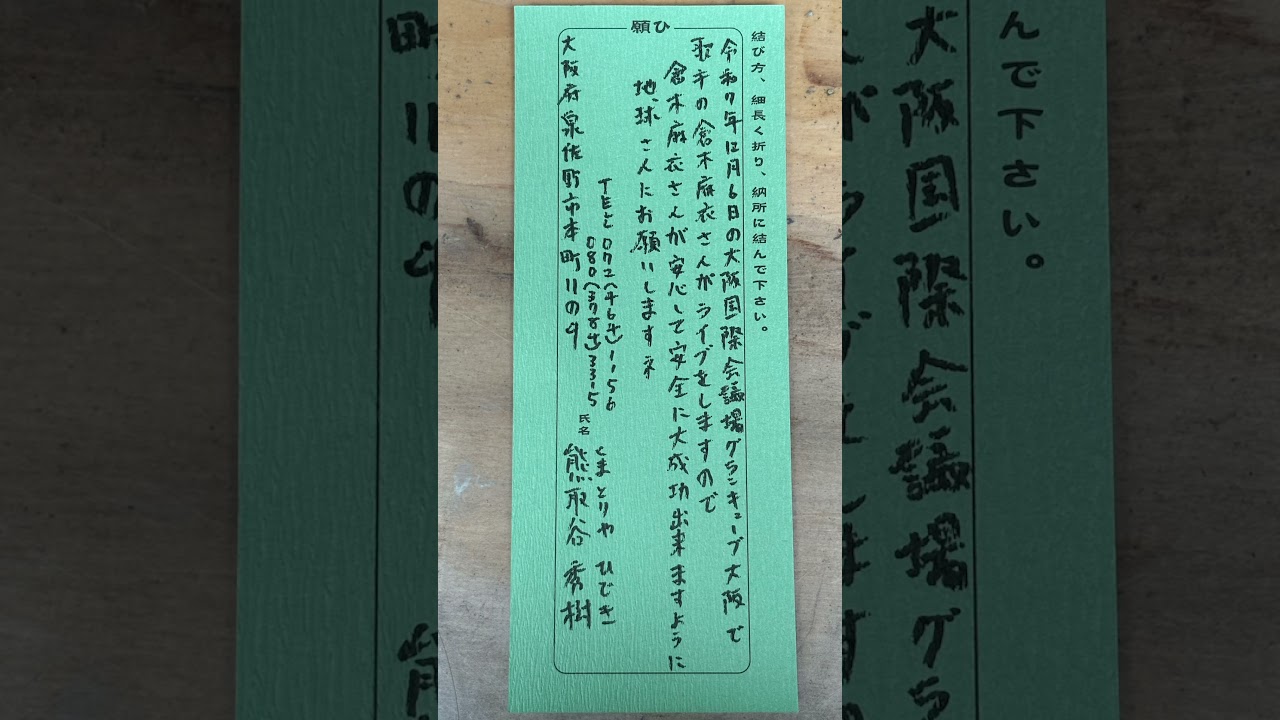 願ひ
結び方、細長く折り、納所に結んで下さい。
令和7年12月6日の大阪国際会議場グランキューブ大阪で
歌手の倉木麻衣さんがライブをしますので
倉木麻衣さんが安心して安全に大成功出来ますように
地球さんにお願いしますネ
TEL072(464)1156
080(3784)3315
大阪府泉佐野市本町11の9
氏名
くまとりや ひでき
熊取谷 秀樹